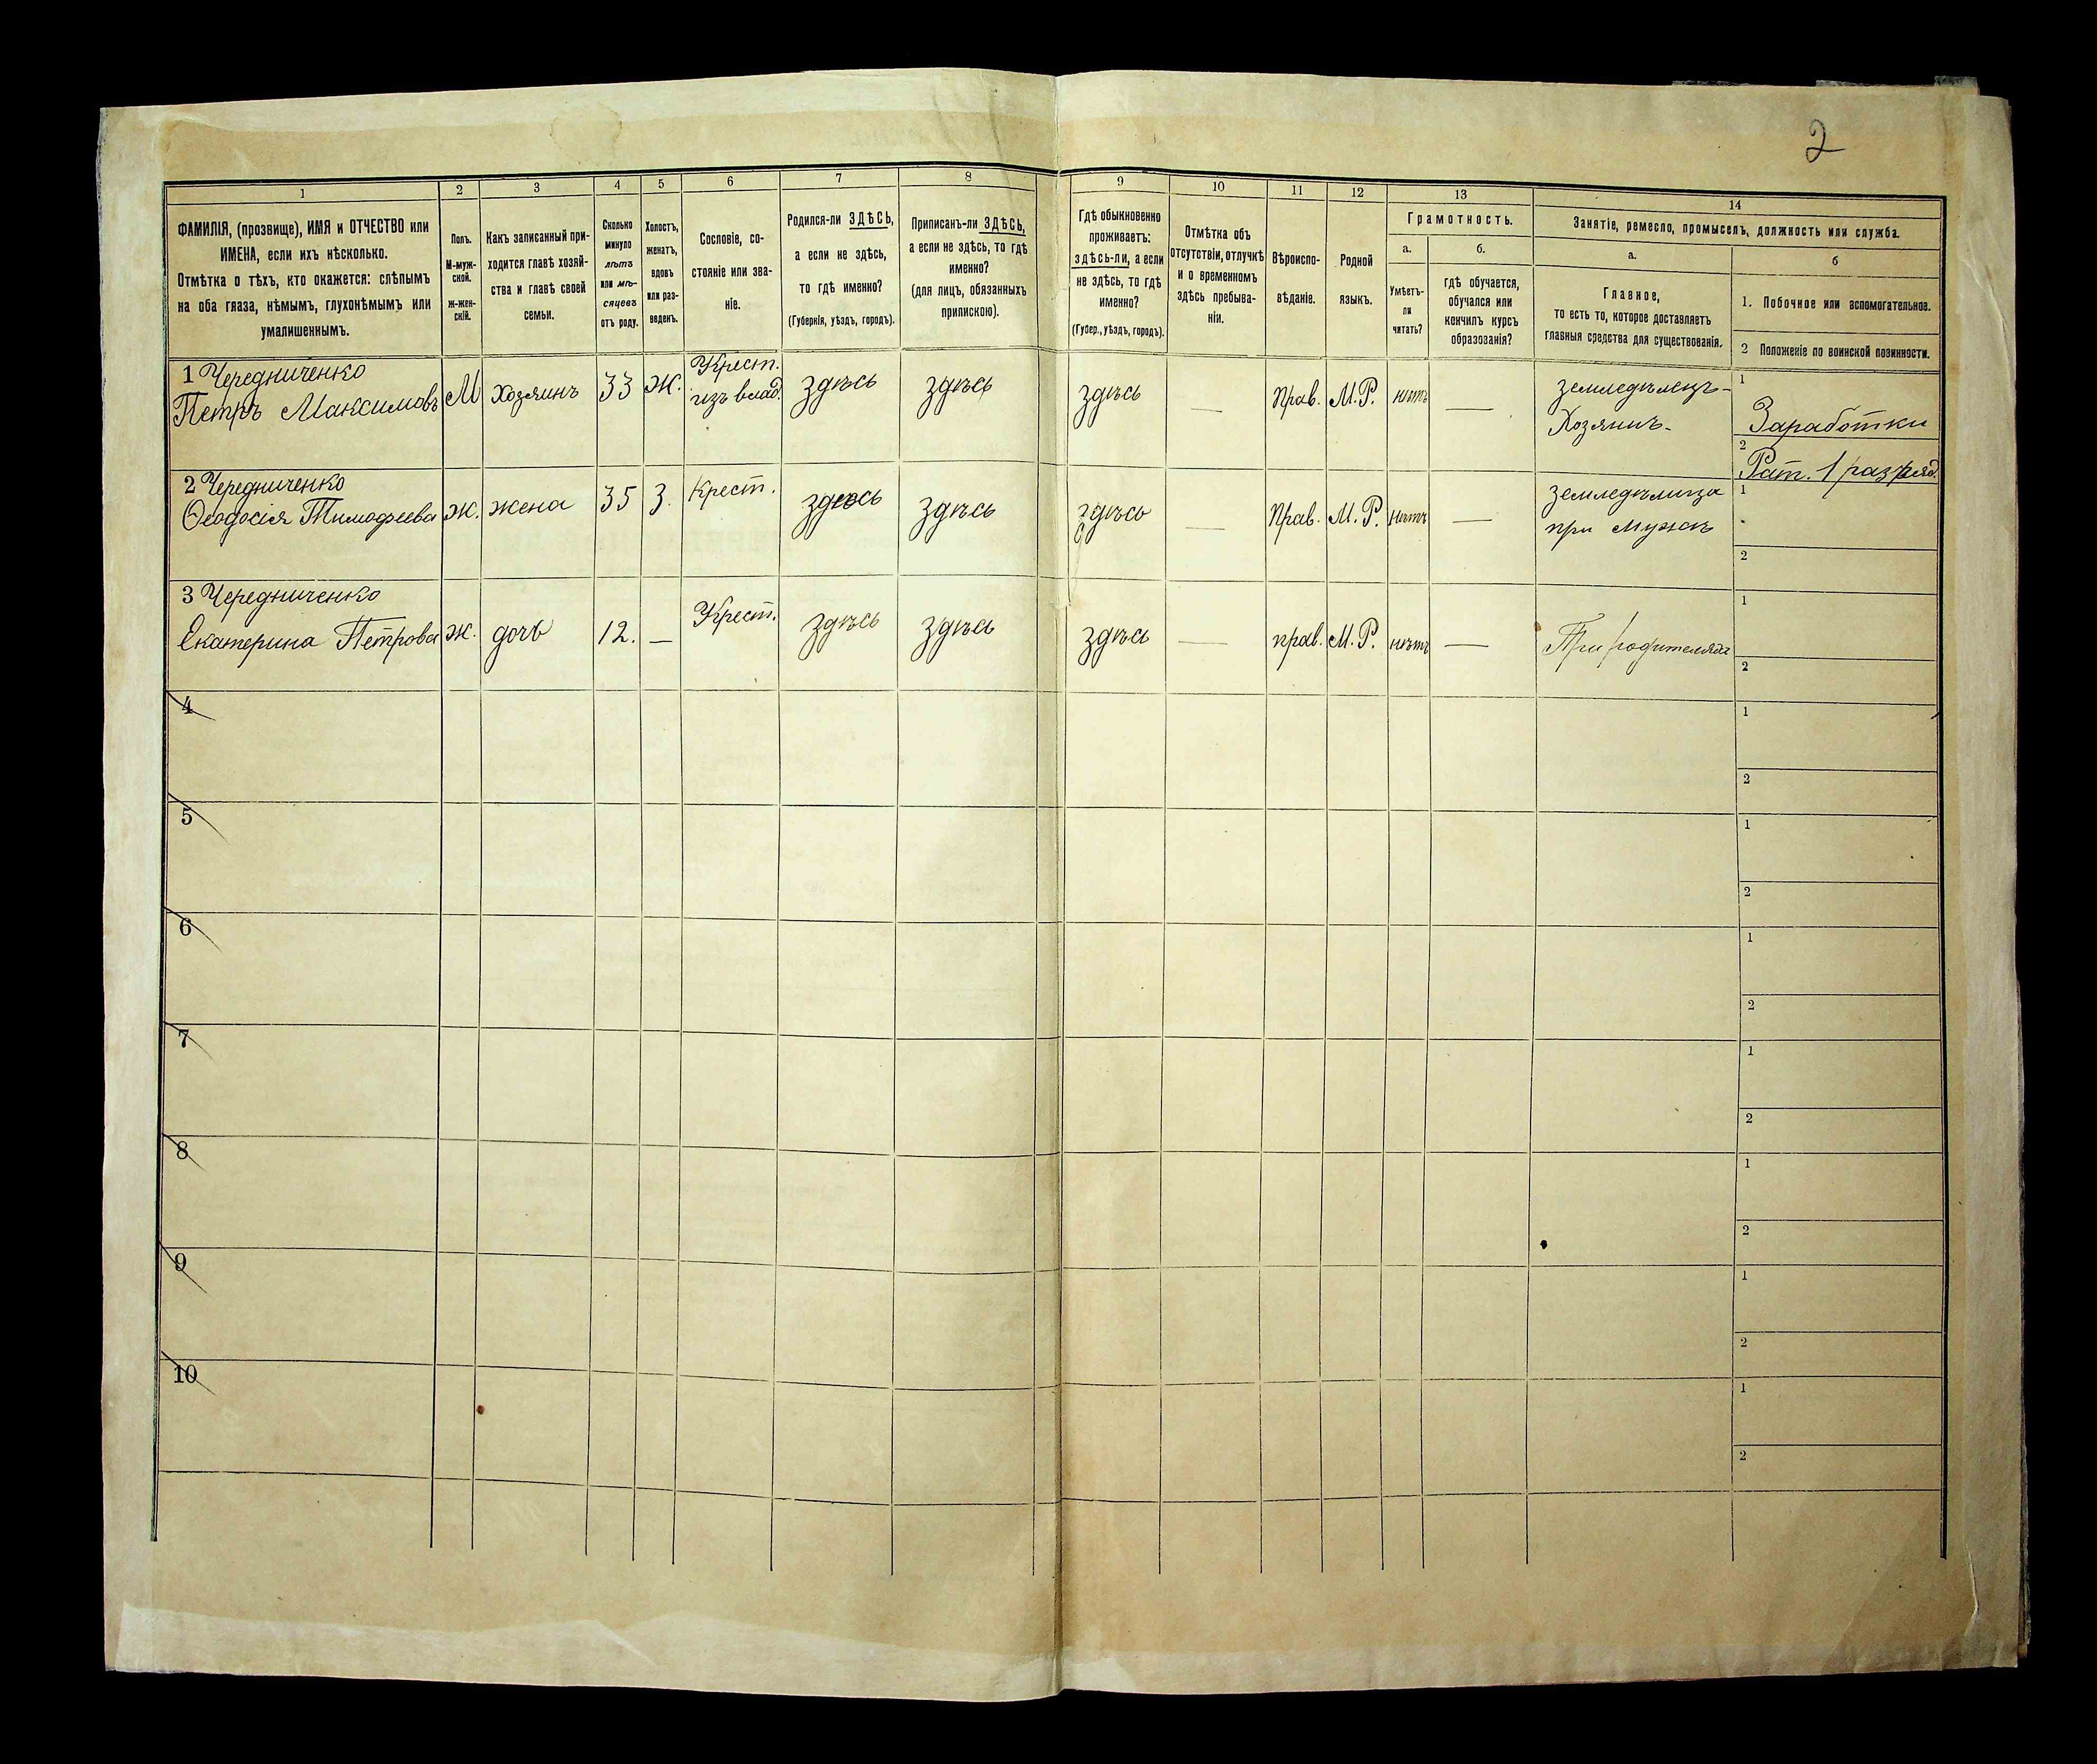 2
1
2
3
4
5
6
7
8
9
10
11
12
13
14
ФАМИЛІЯ, (прозвище), ИМЯ и ОТЧЕСТВО или
ИМЕНА, если ихъ нѣсколько.
Отмѣтка о тѣхъ, кто окажется: слѣпымъ
на оба глаза, нѣмымъ, глухонѣмымъ или
умалишеннымъ.
Полъ.
М-муж-
ской.
ж-жен-
скій.
Какъ записанный при-
ходится главѣ хозяй-
ства и главѣ своей
семьи.
Сколько
минуло
лѣтъ
или мѣ-
сяцевъ
отъ роду.
Холостъ,
женатъ,
вдовъ
или раз-
веденъ.
Сословіе, со-
стояніе или зва-
ніе.
Родился-ли ЗДѢСЬ,
а если не здѣсь,
то гдѣ именно?
(Губернія, уѣздъ, городъ).
Приписанъ-ли ЗДѢСЬ,
а если не здѣсь, то гдѣ
именно?
(для лицъ, обязанныхъ
припискою).
Гдѣ обыкновенно
проживаетъ:
здѣсь-ли, а если
не здѣсь, то гдѣ
именно?
(Губер., уѣздъ, городъ).
Отмѣтка объ
отсутствіи, отлучкѣ
и о временномъ
здѣсь пребыва-
ніи.
Вѣроиспо-
вѣданіе.
Родной
языкъ.
Грамотность.
а.
Умѣетъ-
ли
читать?
б.
гдѣ обучается,
обучался или
кончилъ курсъ
образованія?
Занятіе, ремесло, промыселъ, должность или служба.
а.
Главное,
то есть то, которое доставляетъ
главныя средства для существованія.
б
1. Побочное или вспомогательное.
2 Положеніе по воинской повинности.
1 Чередниченко
Петръ Максимовъ
М
Хозяинъ
33
Ж.
Крест.
изъ влад.
здѣсь
здѣсь
здѣсь
—
Прав.
М.Р.
нѣтъ
—
земледѣлецъ-
Хозяинъ-
1
Заработки
2
Рат. 1 разряд.
2 Чередниченко
Ѳеодосія Тимофеева
Ж.
жена
35
З.
Крест.
здѣсь
здѣсь
здѣсь
—
Прав.
М.Р.
нѣтъ
—
земледѣлица
при Мужѣ
1
2
3 Чередниченко
Екатерина Петрова
Ж.
дочь
12.
—
Крест.
здѣсь
здѣсь
здѣсь
—
прав.
М.Р.
нѣтъ
—
При родителяхъ
1
2
4
1
2
5
1
2
6
1
2
7
1
2
8
1
2
9
1
2
10
1
2